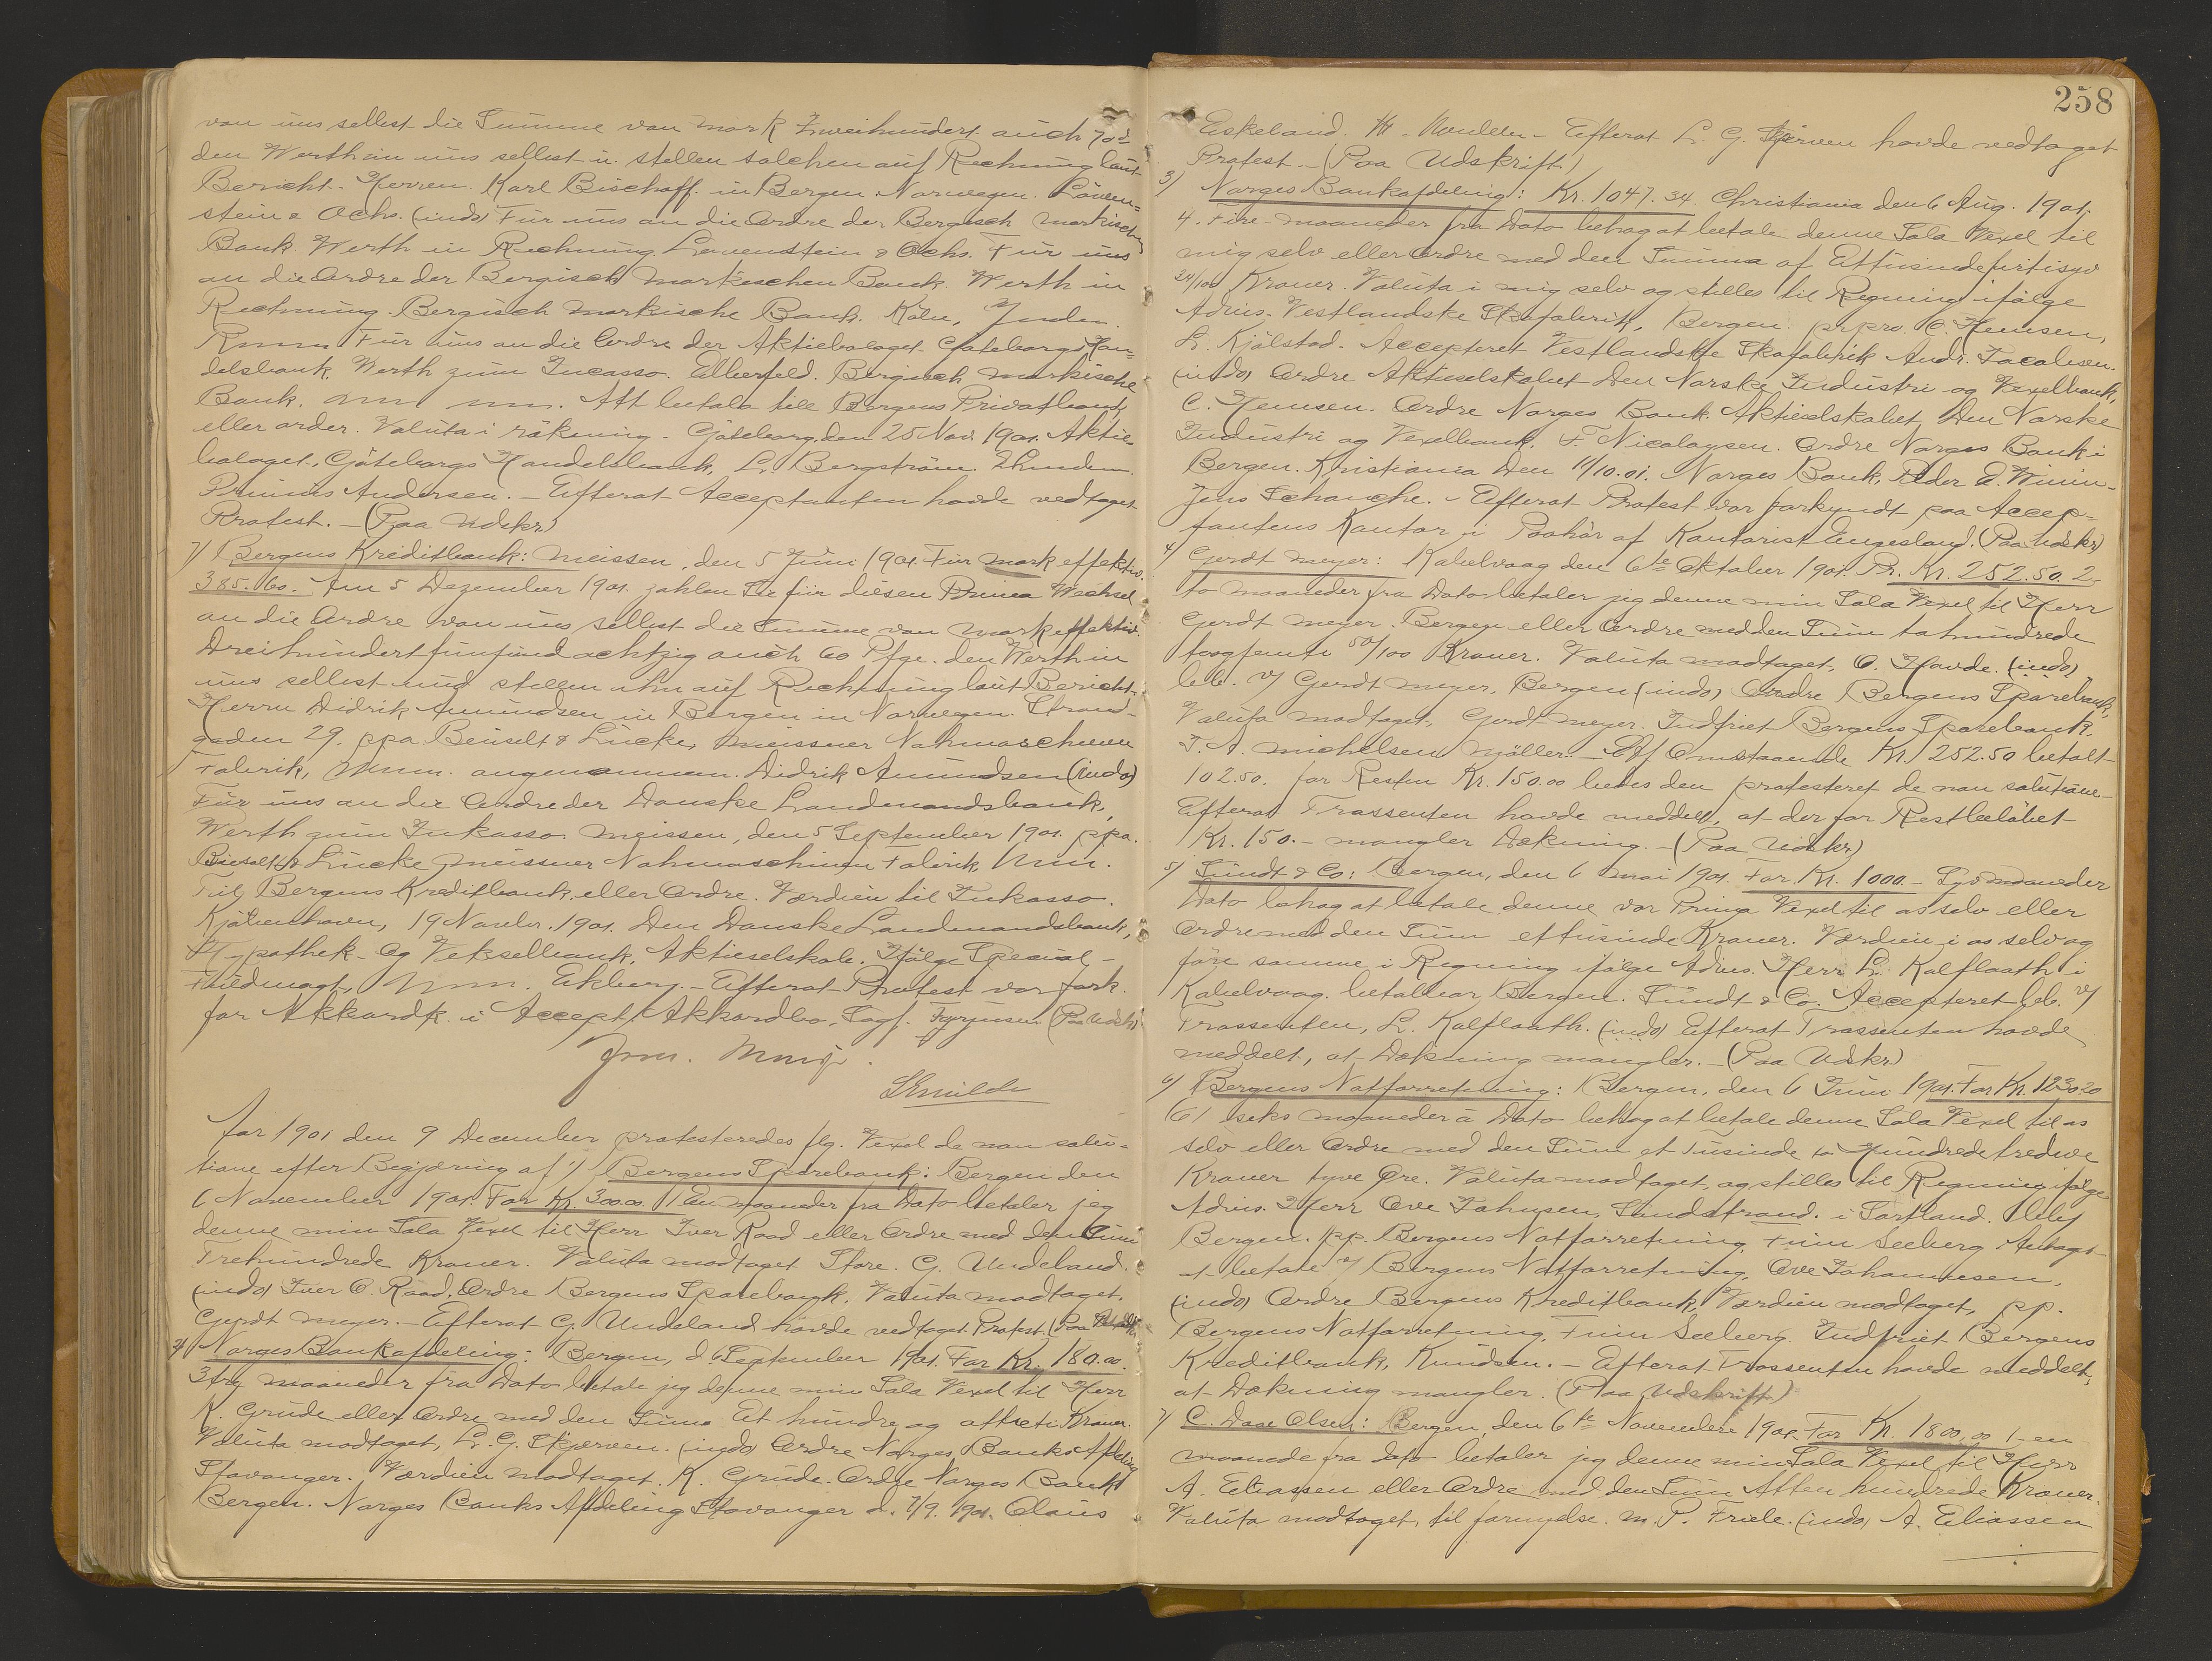 van uns sellest die Summe van Mark Zweihundert auch 70 d
den Werth in uns sellest u. stellen solchen auf Rechnung laut
Bericht. Herren. Karl Bischoff. in Bergen Norwegen. Löwen=
stein & Ochs. (indo) Für uns an die Ordre der Bergisch Markischen
Bank Werth in Rechnung. Lowenstein & Ochs. Für uns
an die Ordre der Bergisch Markischen Bank. Werth in
Rechnung. Bergisch Markische Bank. Köln,
Für uns an die Ordre der Aktiebolaget Göteborgs Han=
delsbank, Werth zum Incasso. Elberfeld. Bergisch Markische
Bank. Att betala till Bergens Privatbank
eller order. Valuta i räkning. Göteborg, den 25 Nov. 1901. Aktie
bolaget, Göteborgs Handelsbank, L. Bergström.
Andersen. – Efterat Acceptanten havde vedtaget
Protest. – (Paa Udskr)
7) Bergens Kreditbank: Meissen, den 5 Juni 1901. Für Mark effektiv.
385.60. Am 5 Dezember 1901 zahlen Sie für diesen Prima Wechsel
an die Ordre van uns sellest die Summe van Mark effektiv.
Dreihundertfünfundachtzig auch 60 Pfge. den Werth in
uns sellest und stellen ihn auf Rechnung laut Bericht.
Herrn Didrik Amundsen in Bergen in Norwegen. Strand-
gaden 29. ppa Beiselt & Lücke, Meissner Nahmaschinen
Fabrik, angenommen. Didrik Amundsen (indo)
Für uns an die Ordre der Danske Landmandsbank,
Werth zum Inkasso. Meissen, den 5 September 1901. ppa.
Biesolt & Lücke Meissner Nahmaschinen Fabrik
Til Bergens Kreditbank eller Ordre. Værdien til Inkasso.
Kjöbenhavn, 19 Novbr. 1901. Den Danske Landmandsbank,
Hypothek- og Vekselbank, Aktieselskab. Ifölge Special-
Fuldmagt, Ekberg. – Efterat Protest var fork.
for Akkordk. i Accept. Akkordbo, Sagf. (Paa Udskr)

Aar 1901 den 9 December protesteredes flg. Vexel de non solu-
tione efter Begjæring af 1) Bergens Sparebank: Bergen den
6 November 1901. For Kr. 300.00. 1 En maaneder fra Dato betaler jeg
denne min Sola Vexel til Herr Iver Raad eller Ordre med den Sum
Trehundrede Kroner. Valuta modtaget Store. G. Undeland.
(indo) Iver O. Raad, Ordre Bergens Sparebank. Valuta modtaget.
Gerdt Meyer. – Efterat G. Undeland havde vedtaget Protest. (Paa Udskr)
2) Norges Bankafdeling: Bergen, d 6 September 1901. For Kr. 180.00.
3 tre maaneder fra Dato betale jeg denne min Sola Vexel til Herr
K. Grude eller Ordre med den Summa Et hundre og ottieti Kroner.
Valuta modtaget, L. G. Skjerven. (indo) Ordre Norges Banks Afdeling
Stavanger. Værdien modtaget. K. Grude. Ordre Norges Bank
Bergen. Norges Banks Afdeling Stavanger d. 7/9. 1901. Claus
258
Eskeland. – Efterat L. G. Skjerven havde vedtaget
Protest. – (Paa Udskrift)
3) Norges Bankafdeling: Kr. 1047.34. Christiania den 6 Aug. 1901.
4. Fire maaneder fra Dato behag at betale denne Sola Vexel til
mig selv eller Ordre med den Summa af Ettusindefirtisyv
34/100 Kroner. Valuta i mig selv og stilles til Regning ifölge
Advis. Vestlandske Skofabrik, Bergen. prpro. C. Hemsen,
L. Kjölstad. Accepteret Vestlandske Skofabrik Andr. Jacobsen.
(indo) Ordre Aktieselskabet Den Norske Industri- og Vexelbank,
C. Hemsen. Ordre Norges Bank. Aktieselskabet Den Norske
Industri og Vexelbank, F. Nicolaysen. Ordre Norges Bank i
Bergen. Kristiania den 11/10.01. Norges Bank, Peder
Jens Schanche. – Efterat Protest var forkyndt paa Accep-
tantens Kontor i Paahör af Kontorist Engesland. (Paa Udskr)
4) Gerdt Meyer: Kabelvaag den 6te Oktober 1901. Pr. Kr. 252.50. 2-
to maaneder fra Dato betaler jeg denne min Sola Vexel til Herr
Gerdt Meyer. Bergen eller Ordre med den Sum tohundrede
tooghemti 50/100 Kroner. Valuta modtaget, O. Hovde. (indo)
beb. v/ Gerdt Meyer, Bergen (indo) Ordre Bergens Sparebank,
Valuta modtaget, Gerdt Meyer. Indfriet Bergens Sparebank.
T. A. Michelsen Möller. – Af Omstaaende Kr. 252.50 betalt
102.50. for Resten Kr. 150.00 bedes den protesteret de non solutione.
Efterat Trassenten havde meddelt, at der for Restbelöbet
Kr. 150.– mangler Dækning. – (Paa Udskr)
5) Sundt & Co: Bergen, den 6 Mai 1901. For Kr. 1000.– Syv maaneder
Dato behag at betale denne vor Prima Vexel til os selv eller
Ordre med den Sum ettusinde Kroner. Værdien i os selv og
före samme i Regning ifölge Advis. Herr L. Kalflaath i
Kabelvaag. betalbar Bergen. Sundt & Co. Accepteret beb. v/
Trassenten, L. Kalflaath. (indo) Efterat Trassenten havde
meddelt, at Dækning mangler. – (Paa Udskr)
6) Bergens Notforretning: Bergen, den 6 Juni 1901. For Kr. 1230.20
(6) seks maaneder à Dato behag at betale denne Sola Vexel til os
selv eller Ordre med den Sum et Tusinde to Hundrede tredive
Kroner tyve Øre. Valuta modtaget, og stilles til Regning ifölge
Advis. Herr Ove Johnsen, Sundstrand. i Sortland.
Bergen. pp. Bergens Notforretning, Finn Seeberg. Antaget
at betale v/ Bergens Notforretning, Ove Johannesen,
(indo) Ordre Bergens Kreditbank, Værdien modtaget, pp.
Bergens Notforretning, Finn Seeberg. Indfriet Bergens
Kreditbank, Knudsen. – Efterat Trassenten havde meddelt,
at Dækning mangler. (Paa Udskrift)
7) C. Dase Olsen: Bergen, den 6te November 1901. For Kr. 1800,00 1-en
maanede fra Dato betaler jeg denne min Sola Vexel til Herr
A. Eliassen eller Ordre med den Sum Atten hundrede Kroner.
Valuta modtaget, til fornyelse. M. P. Friele. (indo) A. Eliassen